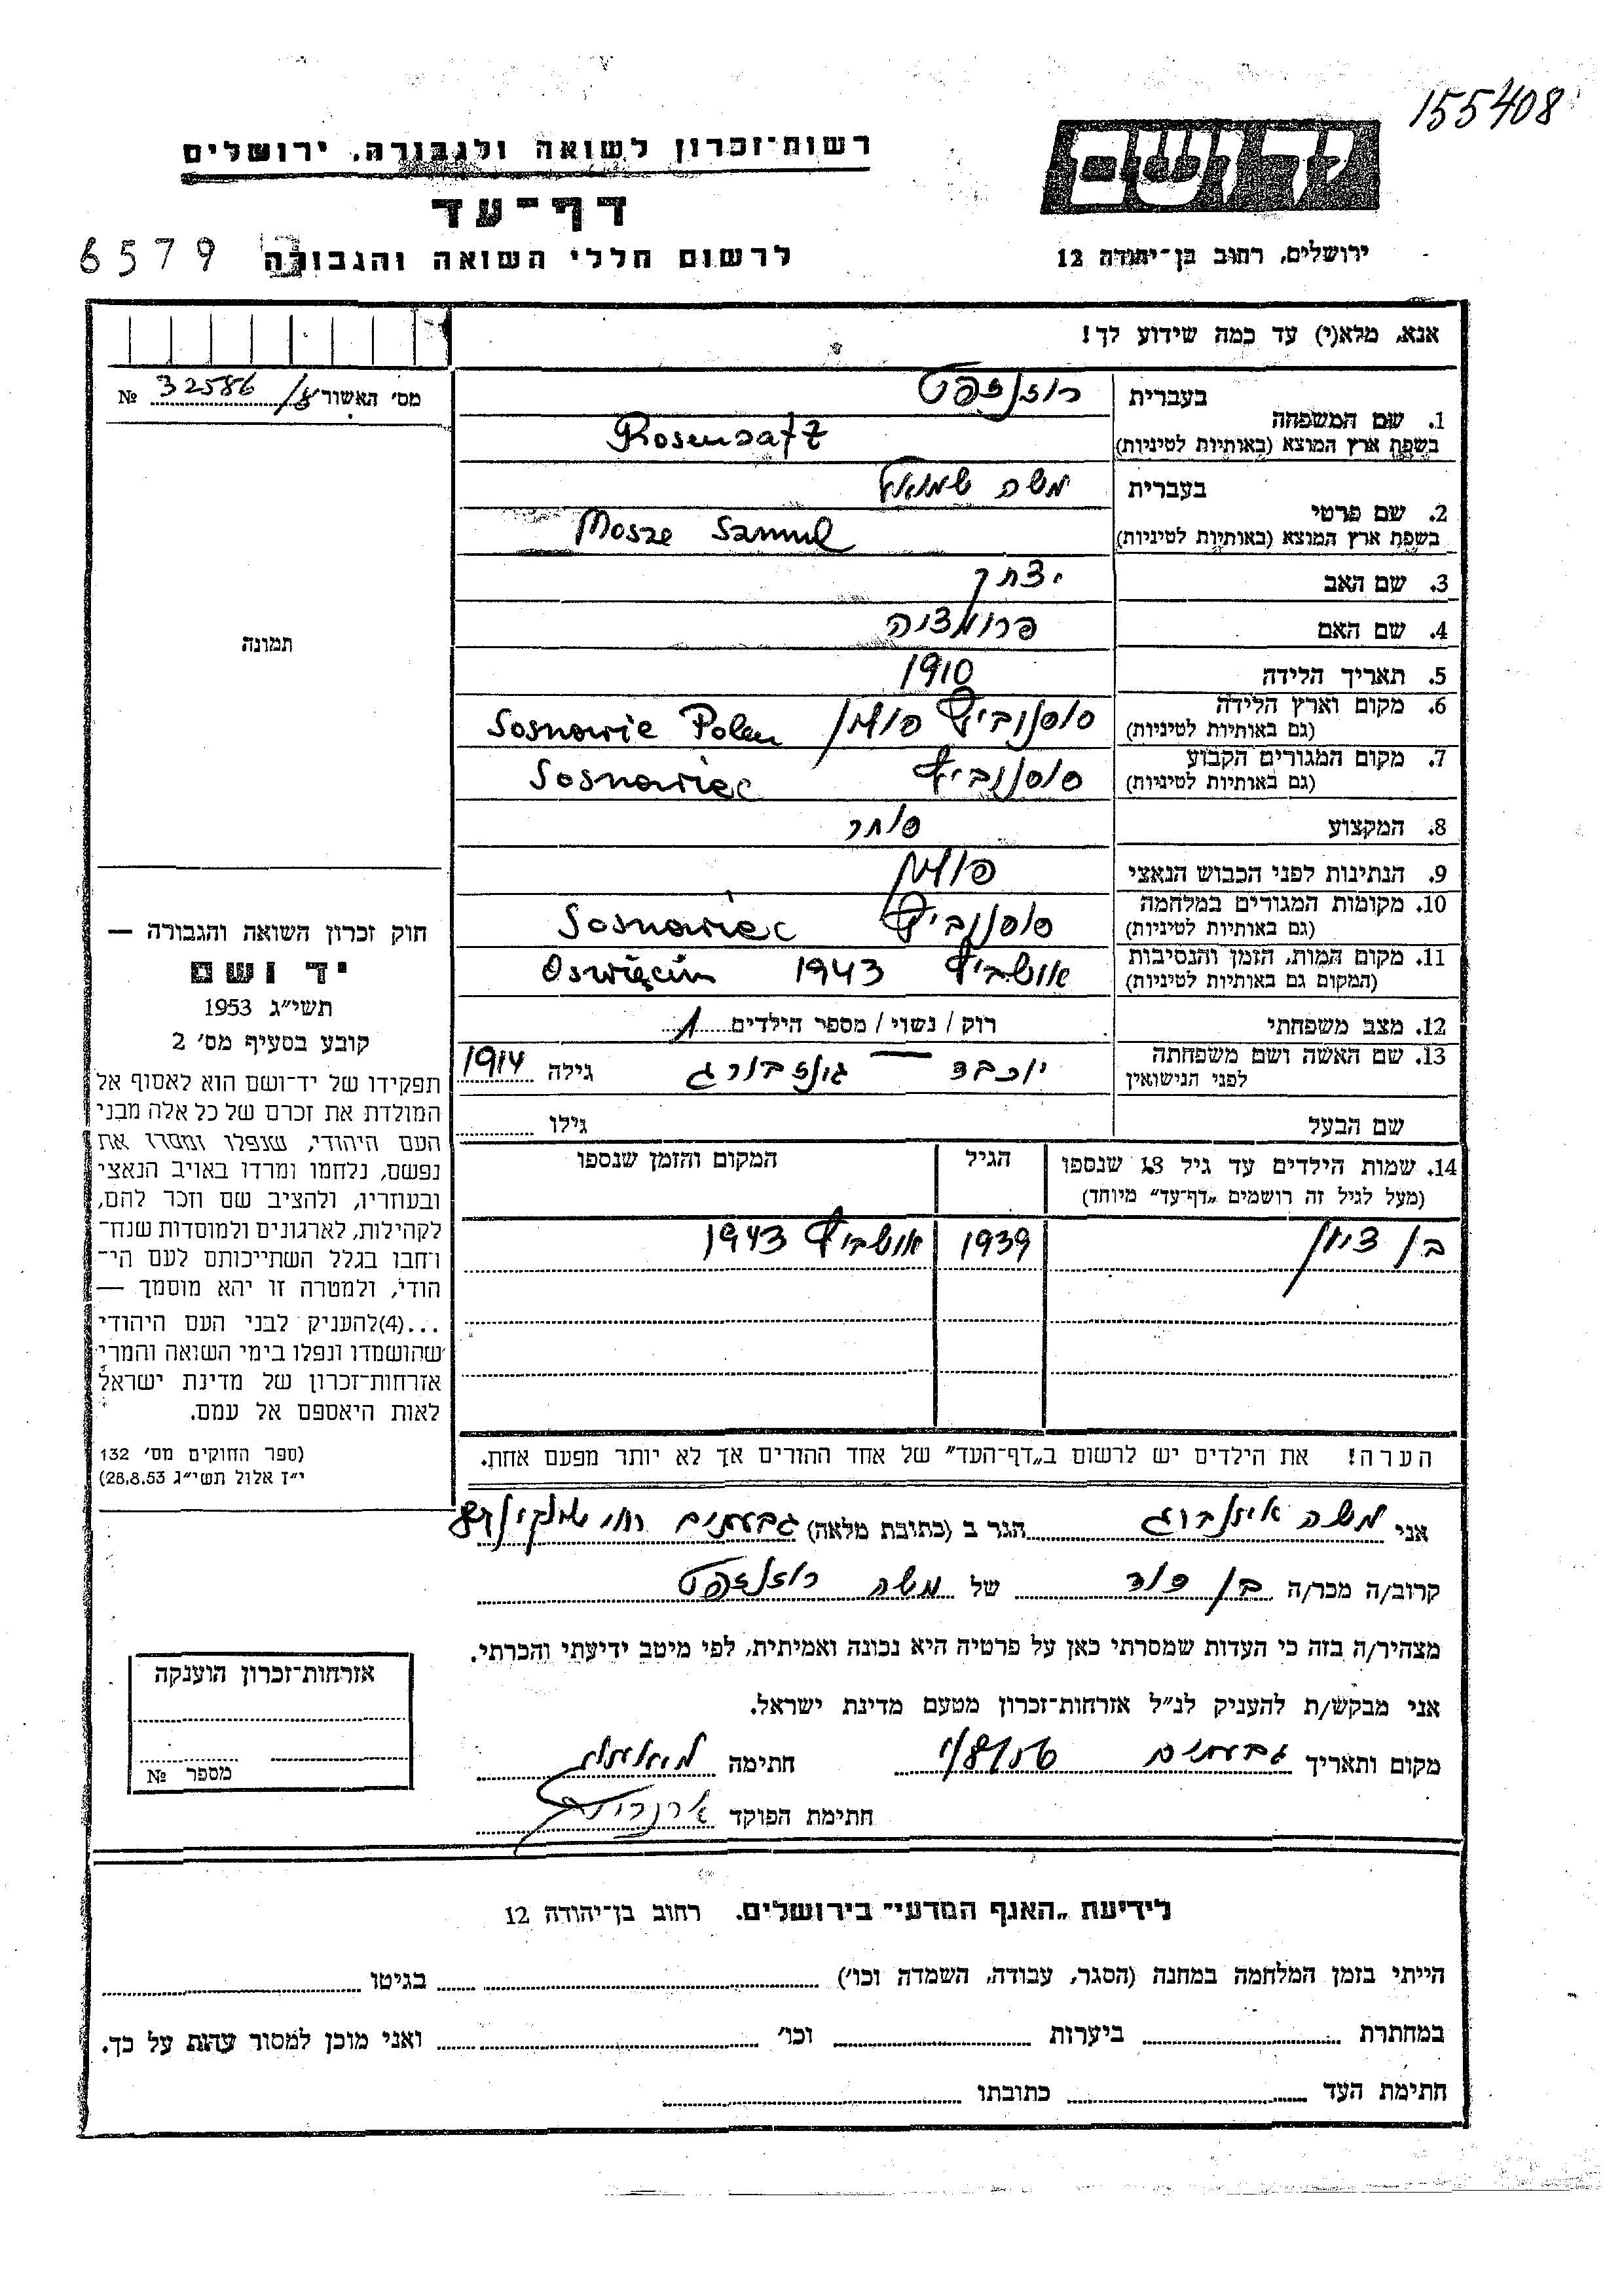 155408
יד ושם
רשות־זכרון לשואה ולגבורה, ירושלים
דף־עד
ירושלים, רחוב בן־יהודה 12
לרשום חללי השואה והגבורה
6579
אנא, מלא(י) עד כמה שידוע לך!
מס׳ האשור 32586 №
1. שם המשפחה
בעברית רוזנזפט
בשפת ארץ המוצא (באותיות לטיניות) Rosensaft
2. שם פרטי
בעברית משה שמואל
בשפת ארץ המוצא (באותיות לטיניות) Mosze Samul
3. שם האב יצחק
4. שם האם
5. תאריך הלידה 1910
6. מקום וארץ הלידה סוסנוביץ פולין Sosnowie Polen
(גם באותיות לטיניות)
7. מקום המגורים הקבוע סוסנוביץ Sosnowiec
(גם באותיות לטיניות)
8. המקצוע סוחר
9. הנתינות לפני הכבוש הנאצי פולין
10. מקומות המגורים במלחמה סוסנוביץ Sosnowiec
(גם באותיות לטיניות)
11. מקום המות, הזמן והנסיבות אושביץ 1943 Oswięcim
(המקום גם באותיות לטיניות)
12. מצב משפחתי רוק / נשוי / מספר הילדים 1
13. שם האשה ושם משפחתה יוכבד גינזבורג גילה 1914
לפני הנישואין
שם הבעל גילו
14. שמות הילדים עד גיל 18 שנספו הגיל המקום והזמן שנספו
(מעל לגיל זה רושמים „דף־עד״ מיוחד)
בן ציון 1939 אושביץ 1943
הערה! את הילדים יש לרשום ב„דף־העד״ של אחד ההורים אך לא יותר מפעם אחת.
תמונה
חוק זכרון השואה והגבורה —
יד ושם
תשי״ג 1953
קובע בסעיף מס׳ 2
תפקידו של יד־ושם הוא לאסוף אל
המולדת את זכרם של כל אלה מבני
העם היהודי, שנפלו ומסרו את
נפשם, נלחמו ומרדו באויב הנאצי
ובעוזריו, ולהציב שם וזכר להם,
לקהילות, לארגונים ולמוסדות שנח־
רבו בגלל השתייכותם לעם הי־
הודי, ולמטרה זו יהא מוסמך —
...(4)להעניק לבני העם היהודי
שהושמדו ונפלו בימי השואה והמרי
אזרחות־זכרון של מדינת ישראל
לאות היאספם אל עמם.
(ספר החוקים מס׳ 132
י״ז אלול תשי״ג 28.8.53)
אני משה הגר ב (כתובת מלאה) גבעתיים
קרוב/ה מכר/ה בן דוד של משה רוזנזפט
מצהיר/ה בזה כי העדות שמסרתי כאן על פרטיה היא נכונה ואמיתית, לפי מיטב ידיעתי והכרתי.
אני מבקש/ת להעניק לנ״ל אזרחות־זכרון מטעם מדינת ישראל.
מקום ותאריך גבעתיים חתימה
חתימת הפוקד
אזרחות־זכרון הוענקה
מספר №
לידיעת „האגף המדעי״ בירושלים. רחוב בן־יהודה 12
הייתי בזמן המלחמה במחנה (הסגר, עבודה, השמדה וכו׳) בגיטו
במחתרת ביערות וכו׳ ואני מוכן למסור עדות על כך.
חתימת העד כתובתו